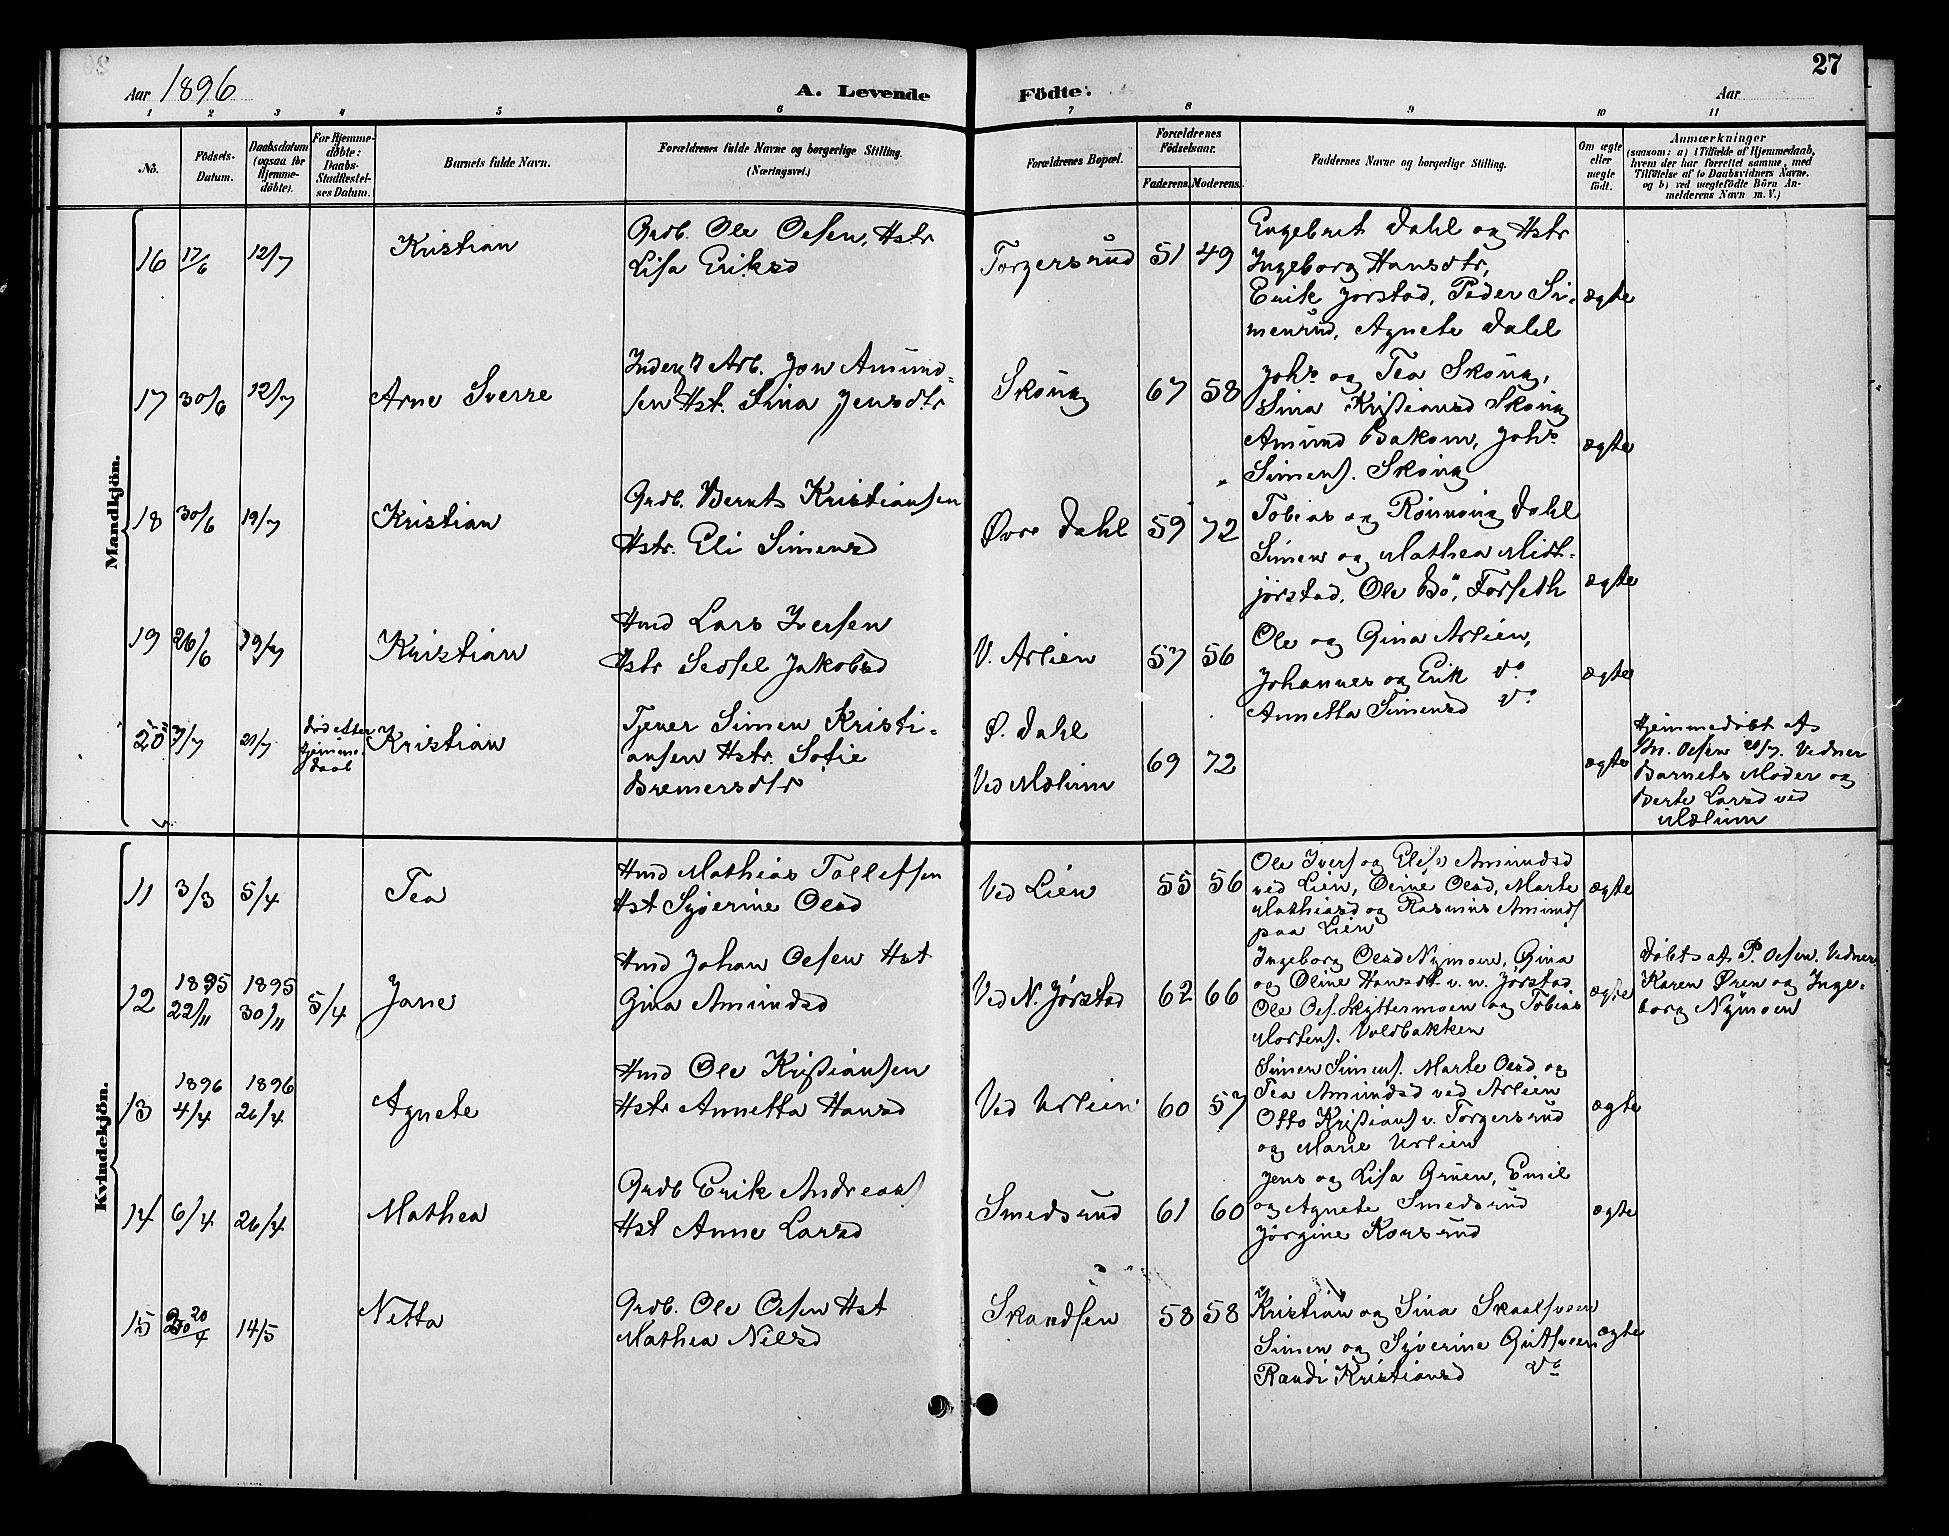 27
Aar 1896
A. Levende Födte.
Aar
1 2 3 4 5 6 7 8 9 10 11
No.
Födsels-Datum.
Daabsdatum (ogsaa for Hjemme-döbte).
For Hjemme-döbte: Daabs-Stadfæstel-ses Datum.
Barnets fulde Navn.
Forældrenes fulde Navne og borgerlige Stilling.
(Næringsvei.)
Forældrenes Bopæl.
Forældrenes Födselsaar.
Faderens. Moderens.
Faddernes Navne og borgerlige Stilling.
Om ægte eller uægte födt.
Anmærkninger
(saasom: a) i Tilfælde af Hjemmedaab,
hvem der har forrettet samme, med
Tilföielse af to Daabsvidners Navne,
og b) ved uægtefödte Börn An-
melderens Navn m. V.)
Mandkjön.
16 17/6 12/7 Kristian
Grdb. Ole Olsen, Hstr
Lisa Eriksd
Torgersrud 51 49
Engebret Dahl og Hstr
Ingeborg Hansdtr,
Erik Jørstad, Peder Si-
mensrud, Agnete Dahl
ægte
17 30/6 12/7 Arne Sverre
Inderst Arb. Jon Amund-
sen Hst. Sina Jensdtr
Skoug 67 58
Johs og Tea Skoug,
Sina Kristiansd Skoug
Amund Bakom, Johs
Simens. Skoug
ægte
18 30/6 19/7 Kristian
Grdb. Bernts Kristiansen
Hstr. Eli Simensd
Øvre Dahl 59 72
Tobias og Rønnoug Dahl
Simen og Mathea Midt-
jørstad, Ole Bö, Forseth
ægte
19 26/6 19/7 Kristian
Hmd Lars Iversen
Hstr Sedsel Jakobsd
V. Arlien 57 56
Ole og Gina Arlien,
Johannes og Erik do
Annetta Simensd do
ægte
20 7/7 21/7 død efter
hjemme
daab
Kristian
Tjener Simen Kristi-
ansen Hstr. Sofie
Bremersdtr
Ø. Dahl
Ved Mælum 69 72
ægte
Hjemmedøbt af
Olsen 20/7. Vidner
Barnets Moder og
Berte Larsd ved
Mælum
Kvindekjön.
11 3/3 5/4 Tea
Hmd Mathias Tollefsen
Hst Syverine Olsd
Ved Lien 55 56
Ole Ivers og Elise Amundsd
ved Lien, Oline Olsd, Marte
Mathiasd og Rasmus Amunds
paa Lien
ægte
12 1895 22/11 1895 30/11 5/4 Jane
Hmd Johan Olsen Hst
Gina Amundsd
Ved N. Jørstad 62 66
Ingeborg Olsd Nymoen, Gina
og Oline Hansdt v. n. Jørstad
Ole Ols. Skyttermoen og Tobias
Mortens. Voldbakken
ægte
Døbt af P. Olsen. Vidner
Karen Øren og Inge-
borg Nymoen
13 1896 4/4 1896 26/4 Agnete
Hmd Ole Kristiansen
Hstr Annetta Hansd
Ved Urlien 60 57
Simen Simens. Marte Olsd og
Tea Amundsd ved Arlien
Otto Kristians v. Torgersrud
og Marie Urlien
ægte
14 6/4 26/4 Mathea
Grdb Erik Andreas
Hst Anne Larsd
Smedsrud 61 60
Jens og Lisa Gruen, Emil
og Agnete Smedsrud
Jørgine Korsrud
ægte
15 20/4 14/5 Netta
Grdb. Ole Olsen Hst
Mathea Nilsd
Skandsen 58 58
Kristian og Sina Skaalsveen
Simen og Syverine Gutsveen
Randi Kristiansd do
ægte